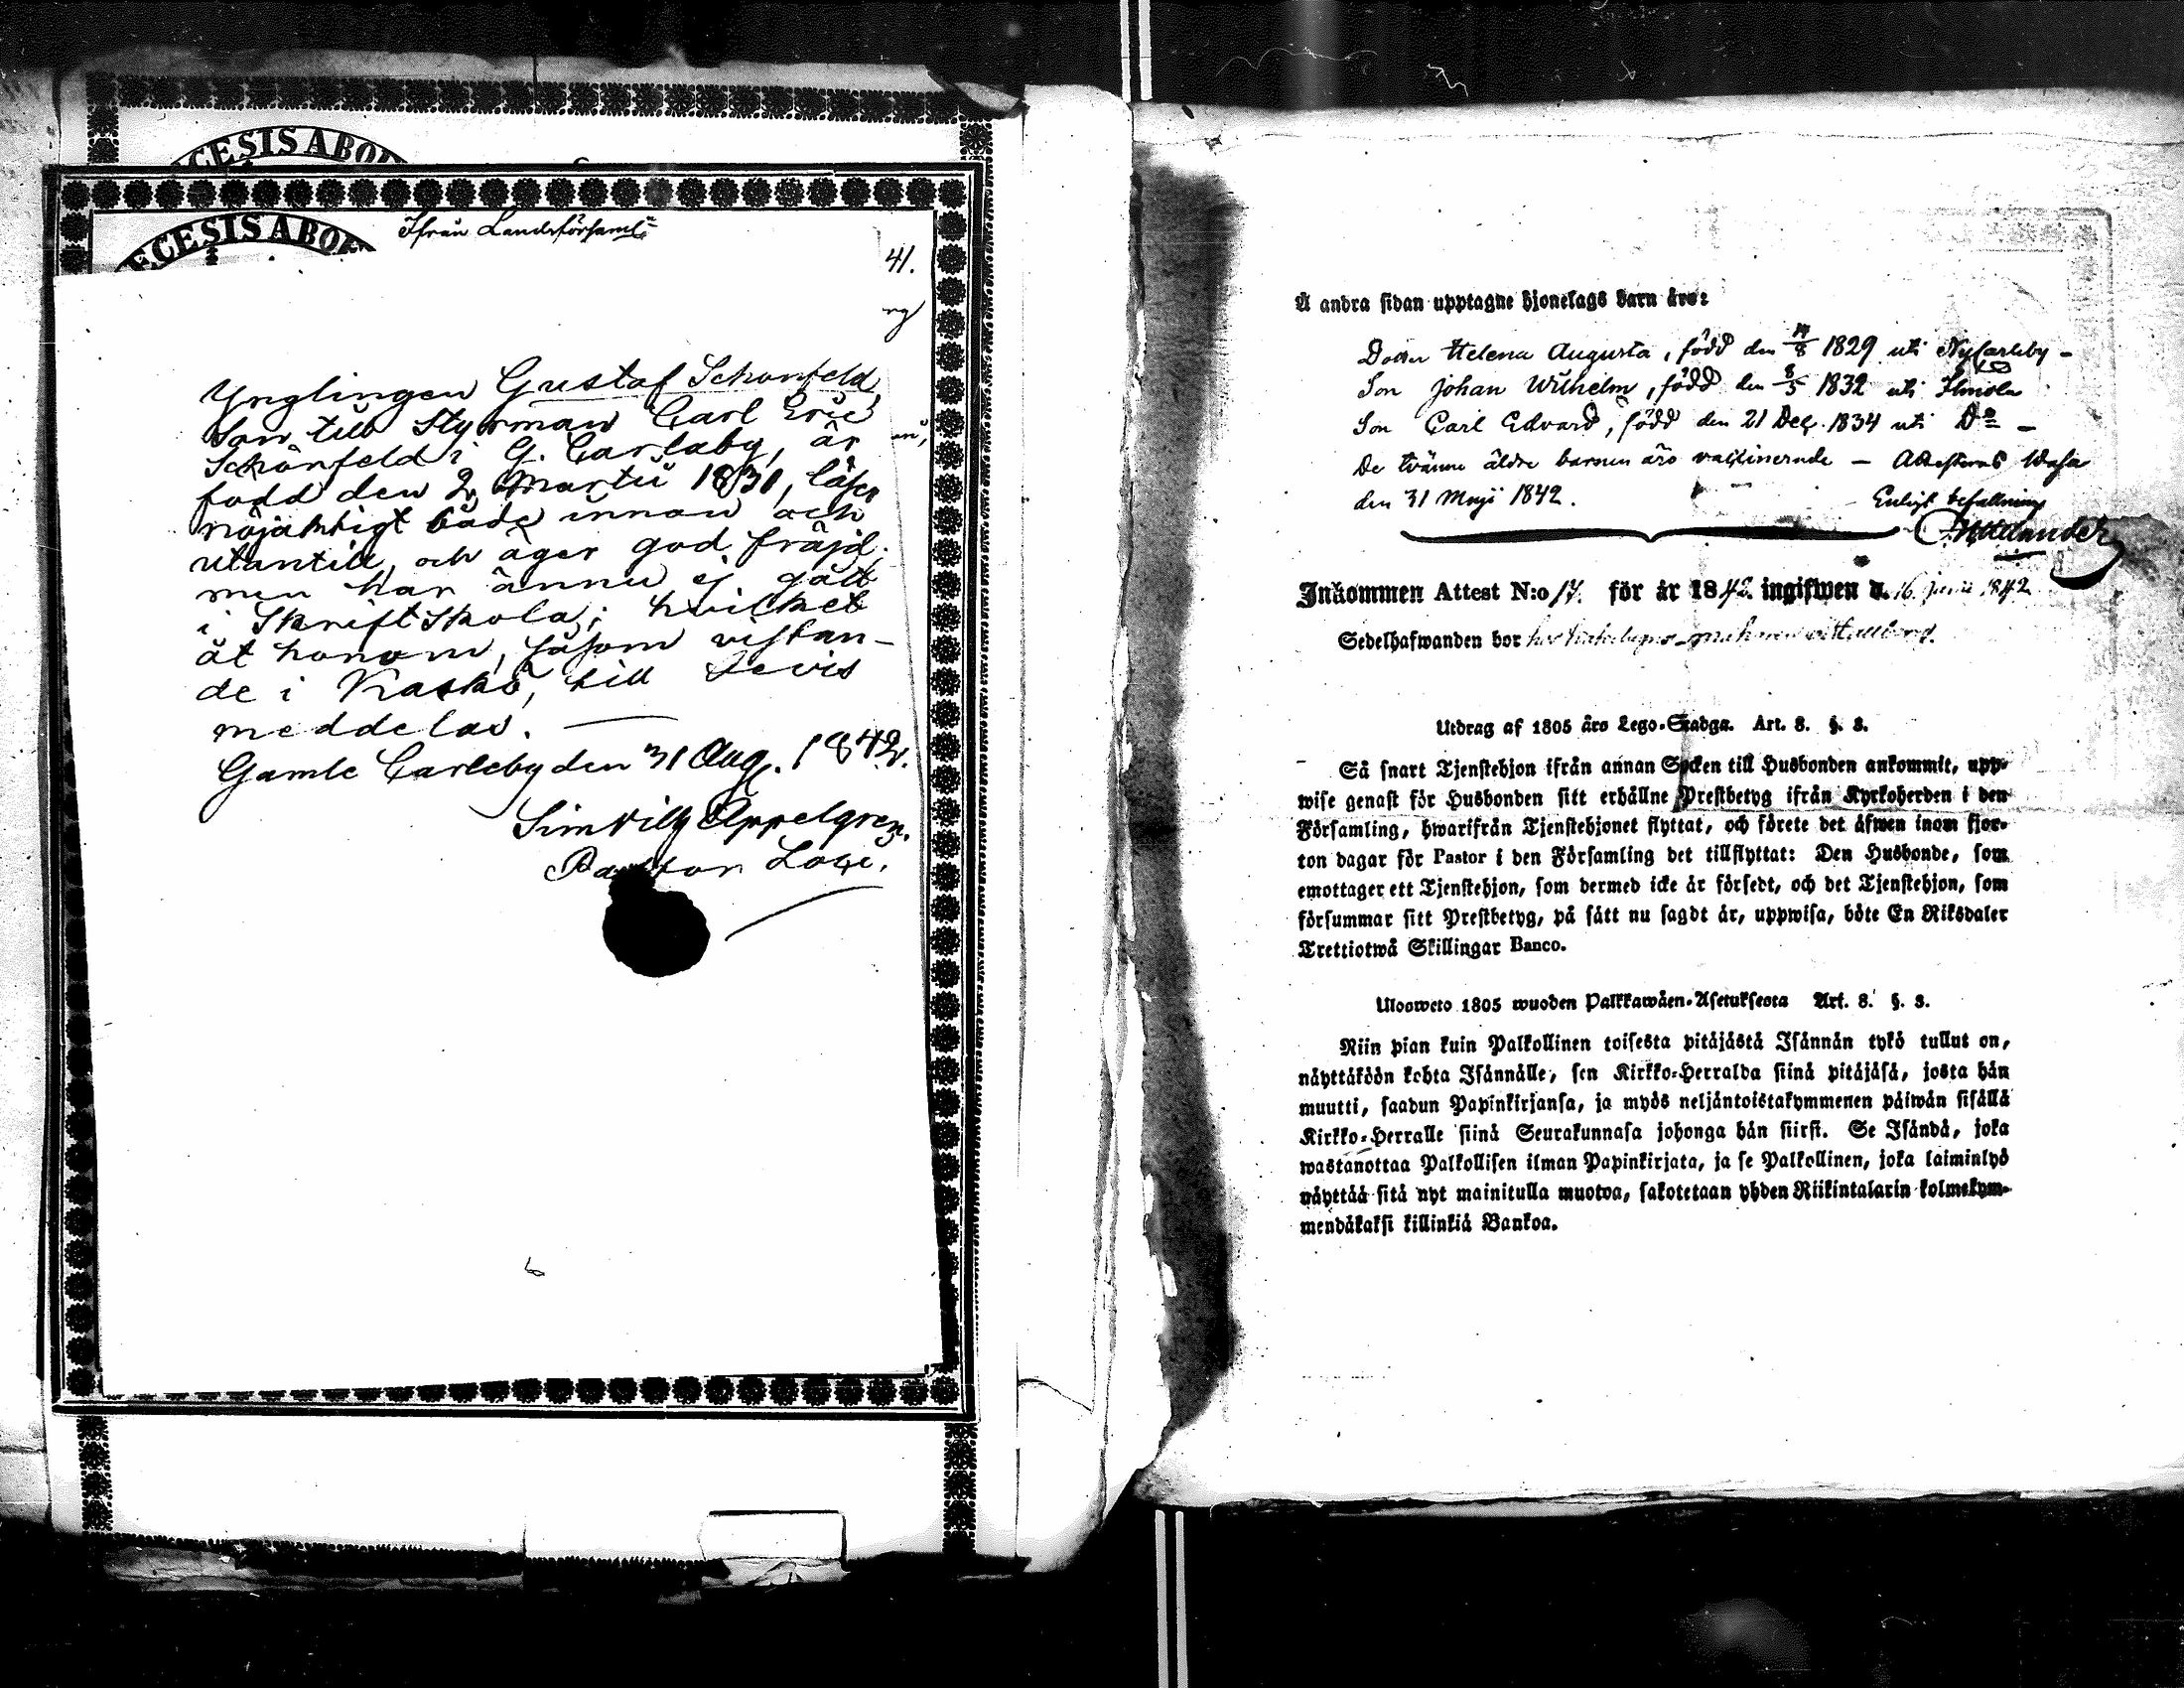 ECESIS ABO
ECESIS ABOE
Ifrån Landsförsaml:
41.
Ynglingen Gustaf Schonfeld,
Son till Styrman Carl Eric
Schönfeld i G. Carlaby, är
född den 2 Martii 1830, läser
nöjaktigt både innan och
utantill och äger god fräjd;
men har ännu ej gått
i Skriftskola; hvilket
åt honom, såsom vistan-
de i Kaskö, till bevis
meddelas.
Gamle Carleby den 31 Aug. 1842.
Sim Wilh Appelgren.
Pastor Loci.
Å andra sidan upptagne hjonelags barn äro:
Dotter Helena Augusta, född den 14/8 1829 uti NyCarleby –
Son Johan Wilhelm, född den 8/5 1832 uti Ilmola
Son Carl Edvard, född den 21 Dec. 1834 uti Do –
De tvänne äldre barnen äro vaccinerade – Attesteras Wasa
den 31 Maji 1842.
Enligt befallning
Inkommen Attest N:o 17. för år 1842 ingifwen d. 16 Junii 1842
Sedelhafwanden bor hos
Utdrag af 1805 års Lego-Stadga. Art. 8. §. 8.
Så snart Tjenstehjon ifrån annan Socken till Husbonden ankommit, upp-
wise genast för Husbonden sitt erhållne Prestbetyg ifrån Kyrkoherden i den
Församling, hwarifrån Tjenstehjonet flyttat, och förete det äfwen inom fjor-
ton dagar för Pastor i den Församling det tillflyttat: Den Husbonde, som
emottager ett Tjenstehjon, som dermed icke är försedt, och det Tjenstehjon, som
försummar sitt Prestbetyg, på sätt nu sagdt är, uppwisa, böte En Riksdaler
Trettiotwå Skillingar Banco.
Ulosweto 1805 wuoden Palkkawäen-Asetuksesta Art. 8. §. 8.
Niin pian kuin Palkollinen toisesta pitäjästä Isännän tykö tullut on,
näyttäköön kohta Isännälle, sen Kirkko-Herralda siinä pitäjäsä, josta hän
muutti, saadun Papinkirjansa, ja myös neljäntoistakymmenen päiwän sisällä
Kirkko-Herralle siinä Seurakunnasa johonga hän siirsi. Se Isändä, joka
wastanottaa Palkollisen ilman Papinkirjata, ja se Palkollinen, joka laiminlyö
näyttää sitä nyt mainitulla muotoa, sakotetaan yhden Riikintalarin kolmekym-
mendäkaksi killinkiä Bankoa.